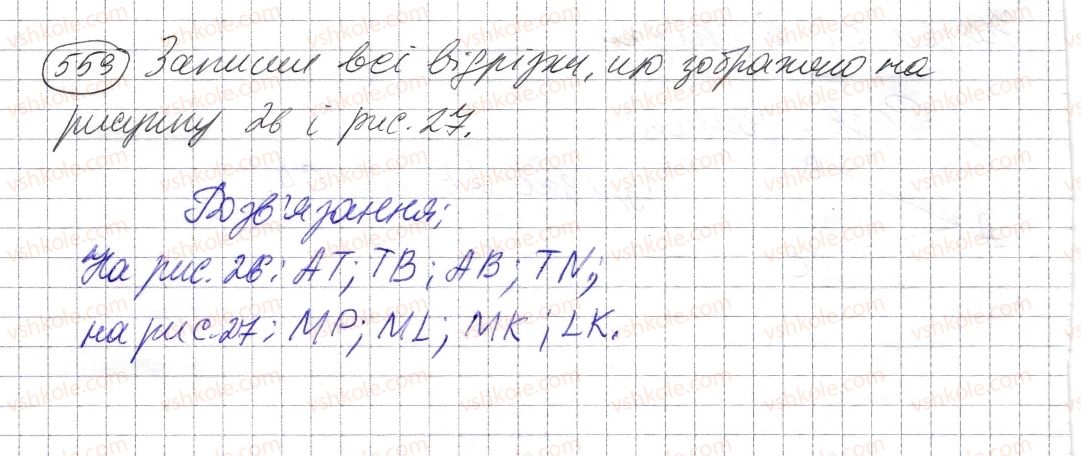 559 Запиши всі відрізки, що зображено на
рисунку 26 і рис. 27.
Розв'язання;
На рис. 26: AT; TB; AB; TN;
на рис. 27: MP; ML; MK; LK.
vshkole.com